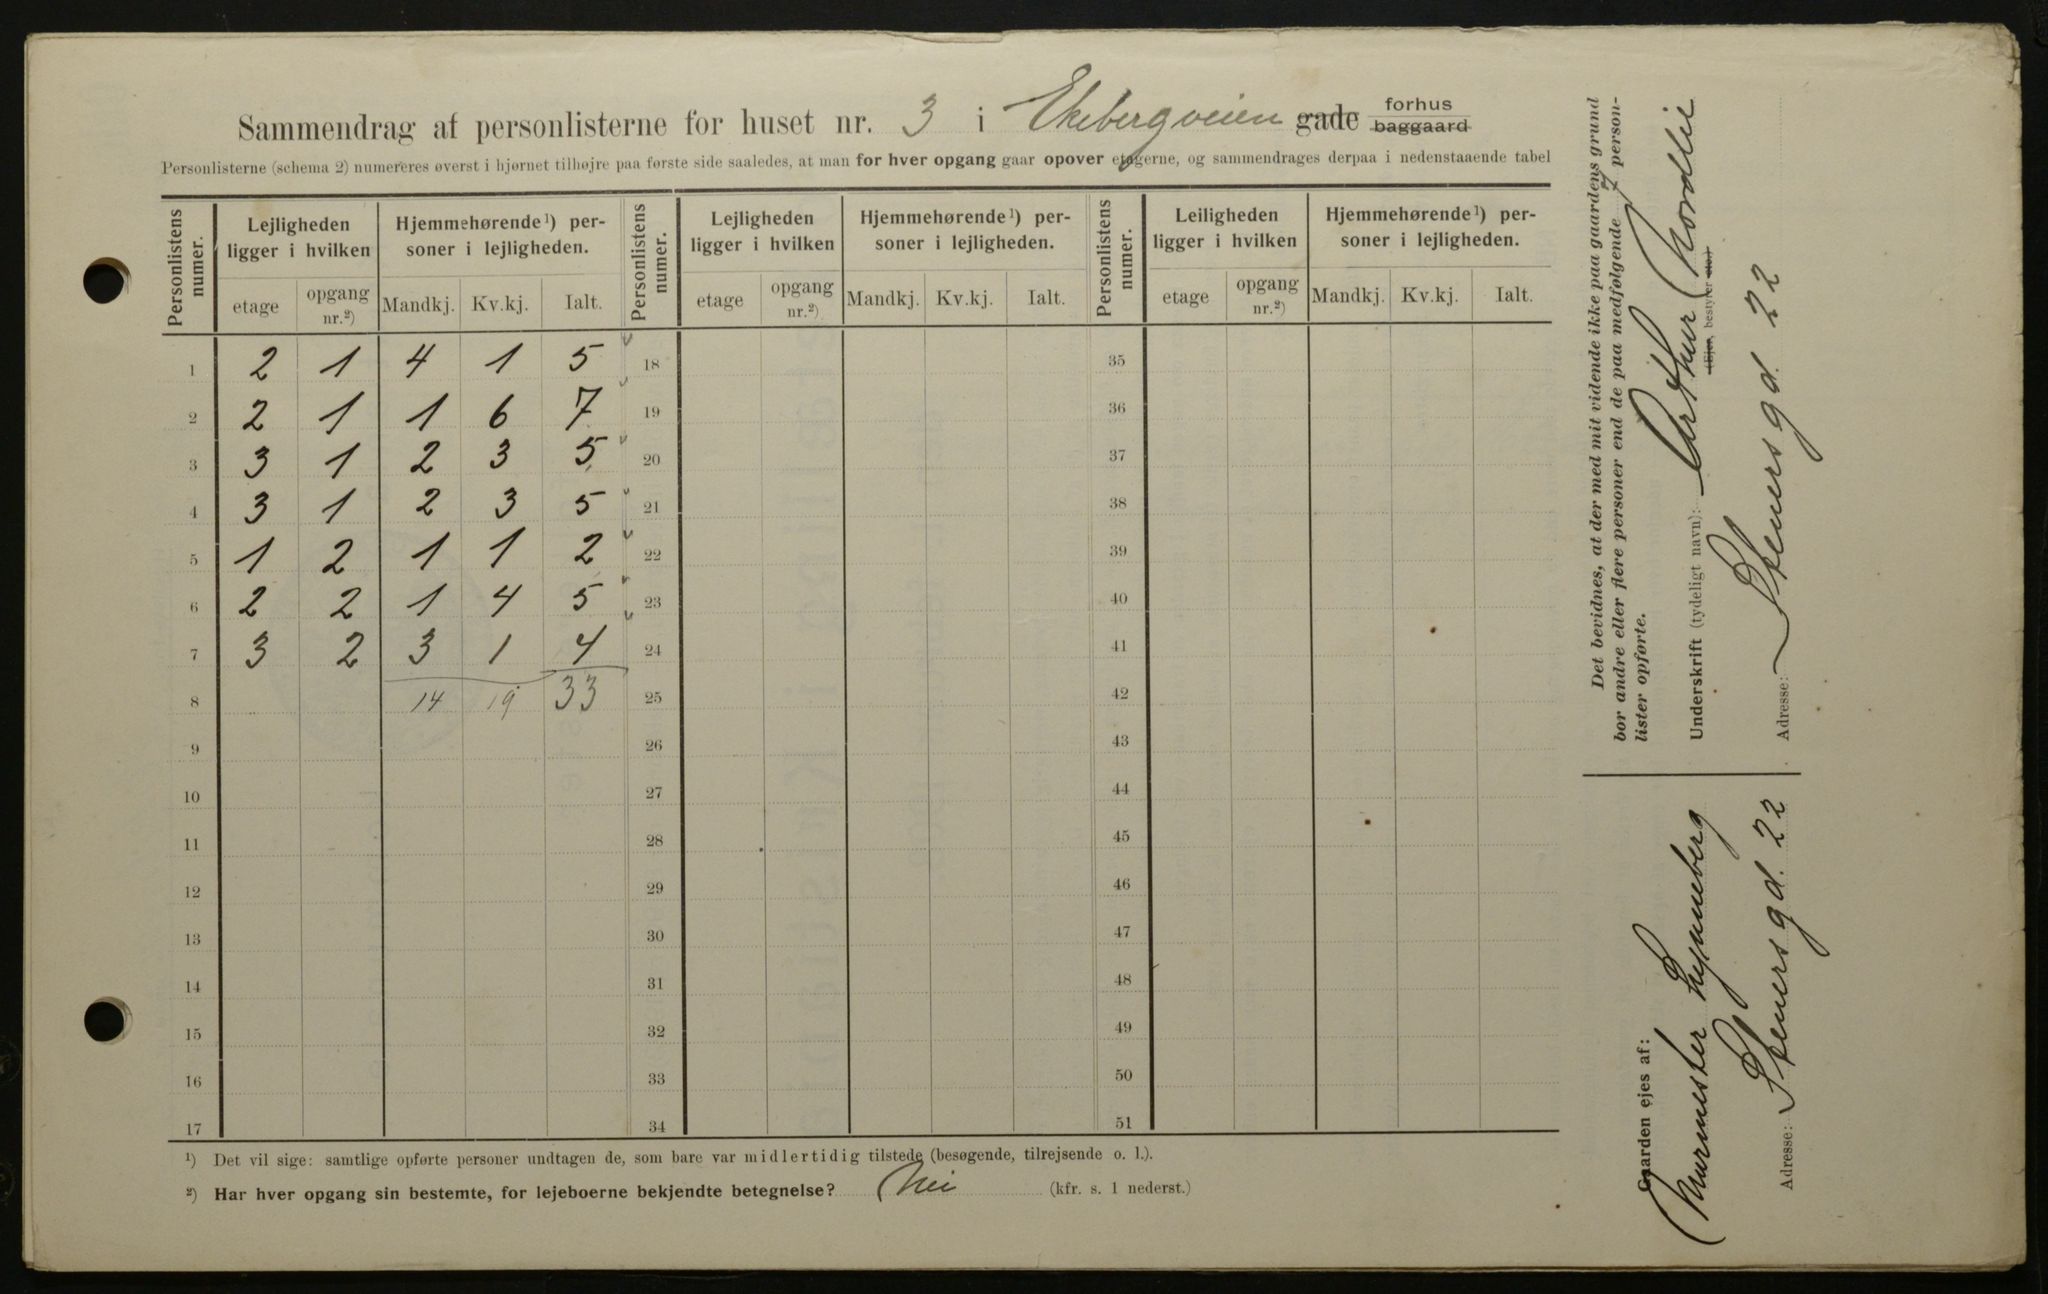 Sammendrag af personlisterne for huset nr. 3 i Ekebergveien gade forhus baggaard
Personlisterne (schema 2) numereres øverst i hjørnet tilhøjre paa første side saaledes, at man for hver opgang gaar opover etagerne, og sammendrages derpaa i nedenstaaende tabel
Personlistens numer. Lejligheden ligger i hvilken Hjemmehørende¹) personer i lejligheden. Personlistens numer. Lejligheden ligger i hvilken Hjemmehørende¹) personer i lejligheden. Personlistens numer. Leiligheden ligger i hvilken Hjemmehørende¹) personer i lejligheden.
etage opgang nr.²) Mandkj. Kv.kj. Ialt. etage opgang nr.²) Mandkj. Kv.kj. Ialt. etage opgang nr.²) Mandkj. Kv.kj. Ialt.
1 2 1 4 1 5 18 35
2 2 1 1 6 7 19 36
3 3 1 2 3 5 20 37
4 3 1 2 3 5 21 38
5 1 2 1 1 2 22 39
6 2 2 1 4 5 23 40
7 3 2 3 1 4 24 41
8 14 19 33 25 42
9 26 43
10 27 44
11 28 45
12 29 46
13 30 47
14 31 48
15 32 49
16 33 50
17 34 51
¹) Det vil sige: samtlige opførte personer undtagen de, som bare var midlertidig tilstede (besøgende, tilrejsende o. l.).
²) Har hver opgang sin bestemte, for lejeboerne bekjendte betegnelse? Nei (kfr. s. 1 nederst.)
Det bevidnes, at der med mit vidende ikke paa gaardens grund
bor andre eller flere personer end de paa medfølgende 7 person-
lister opførte.
Underskrift (tydeligt navn): Arthur Nordlie
(Ejer, bestyrer etc.)
Adresse: Stenersgd. 22
Gaarden ejes af:
Murmester Lynneberg
Adresse: Stenersgd. 22